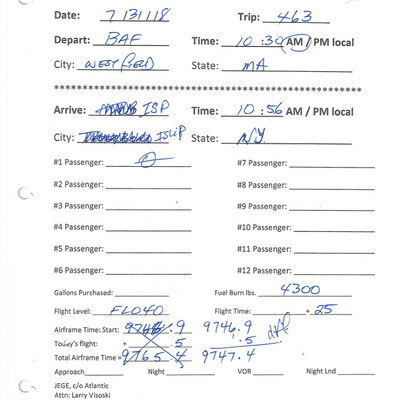 Date: 7/31/18 Trip: 463
Depart: BAF Time: 10:30 AM / PM local
City: WESTFIELD State: MA
**********************************************************
Arrive: ISP Time: 10:56 AM / PM local
City: ISLIP State: NY
#1 Passenger: 0 #7 Passenger:
#2 Passenger: #8 Passenger:
#3 Passenger: #9 Passenger:
#4 Passenger: #10 Passenger:
#5 Passenger: #11 Passenger:
#6 Passenger: #12 Passenger:
Gallons Purchased: Fuel Burn lbs. 4300
Flight Level: FL040 Flight Time: + 25
Airframe Time: Start: .9 9746.9
Today's flight: + .5 .5
Total Airframe Time = 9765.4 9747.4
Approach Night VOR Night Lnd
JEGE, c/o Atlantic
Attn: Larry Visoski